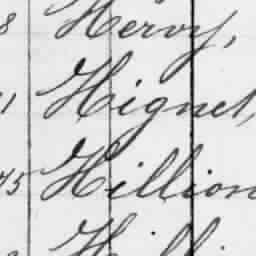 8 Hervy,
1 Hignet,
75 Hillion
Hilli